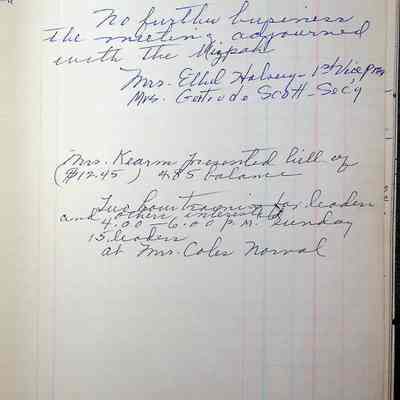 No further business
the meeting adjourned
with the Mizpah
Mrs. Ethel Halsey - 1st Vice Pres
Mrs. Gertrude Scott - Sec'y
Mrs. Kearm presented bill of
($12.45) 4.85 balance
Two hour training for leaders
and others interested
4.00 - 6.00 P.M. Sunday
15 leaders
at Mrs. Coles Norval